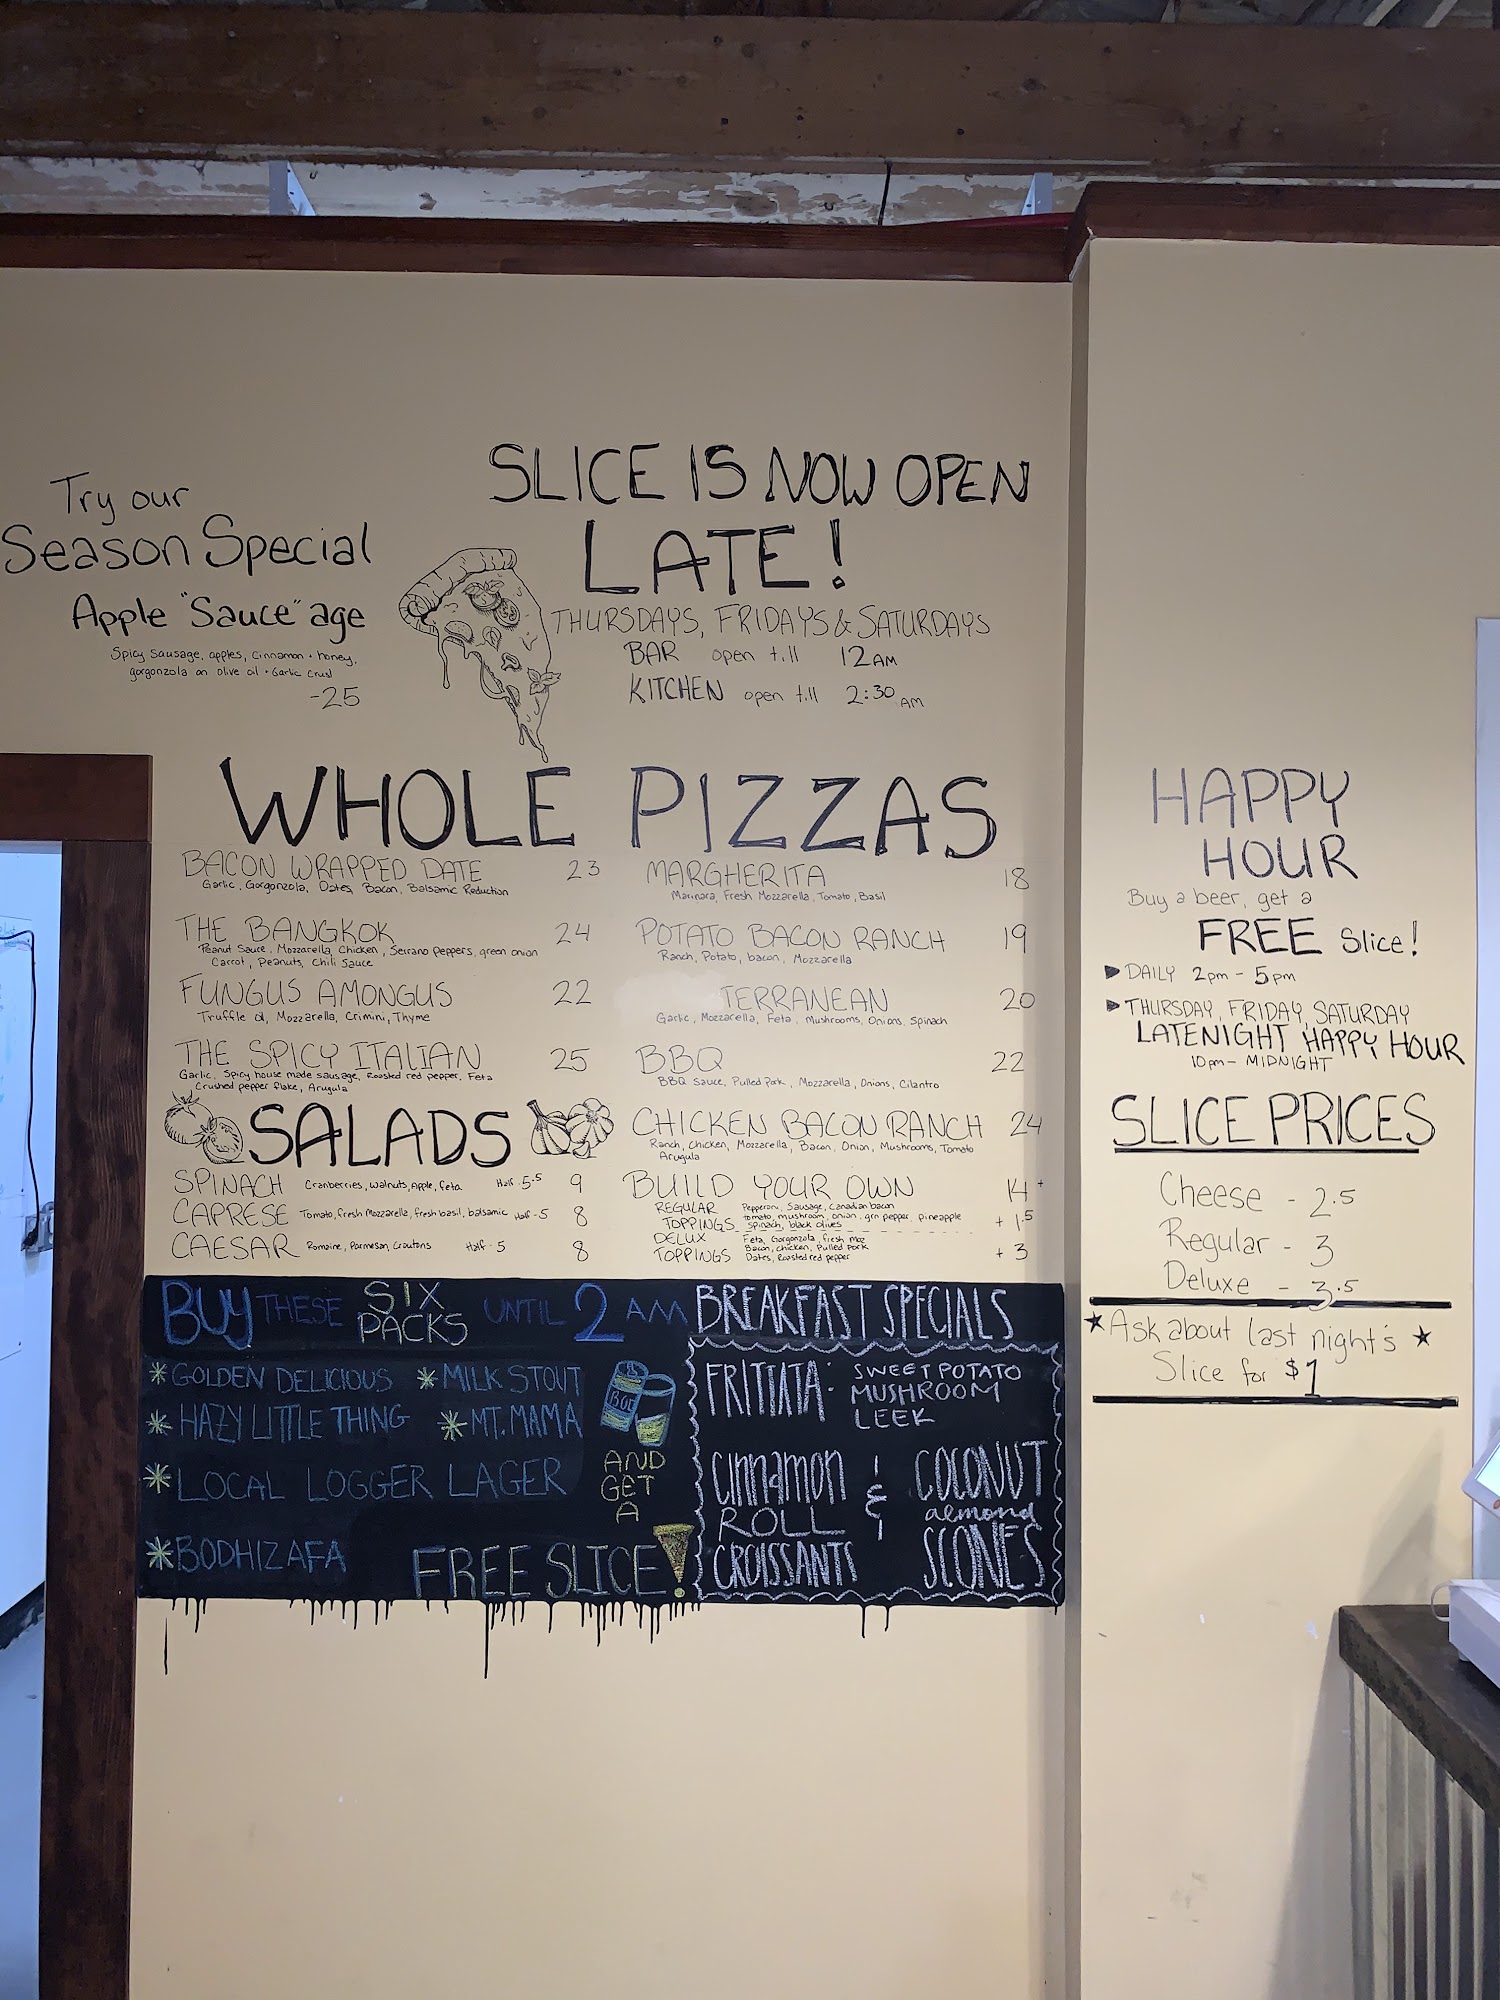 Try our
Season Special
Apple "Sauce" age
Spicy Sausage, apples, cinnamon + honey,
gorgonzola on olive oil + Garlic Crust
-25
SLICE IS NOW OPEN
LATE!
THURSDAYS, FRIDAYS & SATURDAYS
BAR open till 12 AM
KITCHEN open till 2:30 AM
WHOLE PIZZAS
BACON WRAPPED DATE 23
Garlic, Gorgonzola, Dates, Bacon, Balsamic Reduction
THE BANGKOK 24
Peanut Sauce, Mozzarella, Chicken, Serrano Peppers, green onion
Carrot, Peanuts, Chili Sauce
FUNGUS AMONGUS 22
Truffle oil, Mozzarella, Crimini, Thyme
THE SPICY ITALIAN 25
Garlic, Spicy house made sausage, Roasted red pepper, Feta
Crushed pepper flake, Arugula
MARGHERITA 18
Marinara, Fresh Mozzarella, Tomato, Basil
POTATO BACON RANCH 19
Ranch, Potato, bacon, Mozzarella
TERRANEAN 20
Garlic, Mozzarella, Feta, Mushrooms, Onions, Spinach
BBQ 22
BBQ Sauce, Pulled Pork, Mozzarella, Onions, Cilantro
CHICKEN BACON RANCH 24
Ranch, Chicken, Mozzarella, Bacon, Onion, Mushrooms, Tomato
Arugula
BUILD YOUR OWN 14+
REGULAR Pepperoni, Sausage, Canadian bacon
TOPPINGS Tomato, mushroom, onion, grn pepper, pineapple + 1.5
Spinach, black olives
DELUX Feta, Gorgonzola, fresh moz
TOPPINGS Bacon, chicken, Pulled Pork + 3
Dates, Roasted red pepper
SALADS
SPINACH Cranberries, walnuts, Apple, feta Half 5.5 9
CAPRESE Tomato, fresh Mozzarella, fresh basil, balsamic Half - 5 8
CAESAR Romaine, Parmesan, Croutons Half - 5 8
BUY THESE SIX PACKS UNTIL 2 AM
* GOLDEN DELICIOUS * MILK STOUT
* HAZY LITTLE THING * MT. MAMA
* LOCAL LOGGER LAGER
* BODHIZAFA
AND
GET
A
FREE SLICE!
BREAKFAST SPECIALS
FRITTATA: SWEET POTATO
MUSHROOM
LEEK
Cinnamon
ROLL
CROISSANTS
&
COCONUT
almond
SCONES
HAPPY
HOUR
Buy a beer, get a
FREE Slice!
DAILY 2pm - 5pm
THURSDAY, FRIDAY, SATURDAY
LATENIGHT HAPPY HOUR
10pm - MIDNIGHT
SLICE PRICES
Cheese - 2.5
Regular - 3
Deluxe - 3.5
★ Ask about last night's ★
Slice for $1